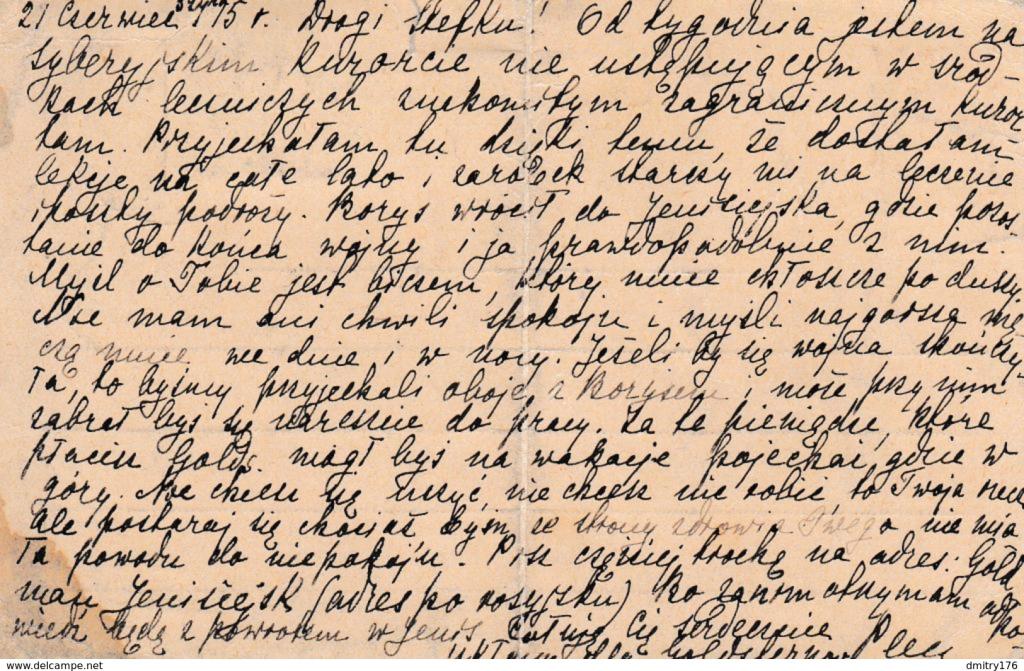 21 czerwiec 1915 r. Drogi Stefku! Od tygodnia jestem na
syberyjskim kurorcie nie ustępującym w środ-
kach leczniczych znakomitym zagranicznym kuror
tam. Przyjechałam tu dzięki temu, że dostałam
lekcje na całe lato i zarobek starczy mi na leczenie
i koszty podróży. Borys wrócił do Jenisiejska, gdzie pozos-
tanie do końca wojny i ja prawdopodobnie z nim.
Myśl o Tobie jest biczem, który mnie chłoszcze po duszy.
Nie mam ani chwili spokoju i myśli najgorsze mę
czą mnie we dnie i w nocy. Jeśeli by się wojna skończy-
ła, to byśmy przyjechali oboje z Borysem i może przy nim
zabrał byś się nareszcie do pracy. Za te pieniądze, które
płacisz Golds. mógł byś na wakacje pojechać gdzie w
góry. Nie chcesz się uczyć, nie chcesz nic robić to Twoja rzecz
ale postaraj się chociaż bym ze strony zdrowia Twego nie mia
ła powodu do niepokoju. Pisz częściej trochę na adres. Gold
man Jenisiejsk (adres po rosyjsku) Bo zanim otrzymam odpo
wiedź będę z powrotem w Jenis. Całuję Cię serdecznie
dla
dmitry176